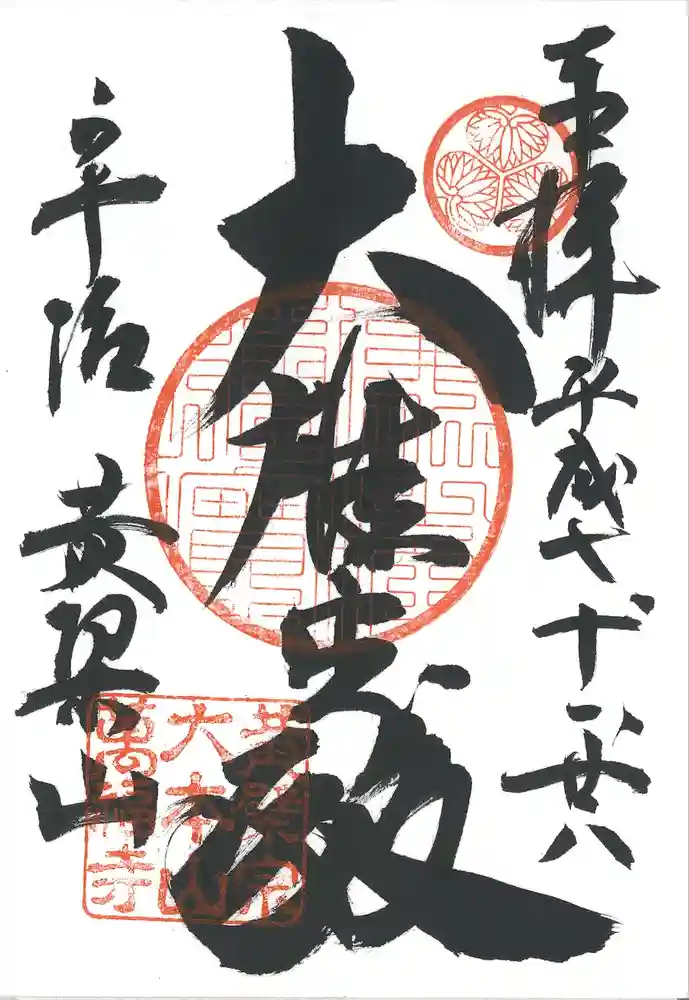 奉拝
平成廿七 十一 廿八
大雄宝殿
宇治 黄檗山
黄檗宗
大本山
萬福寺